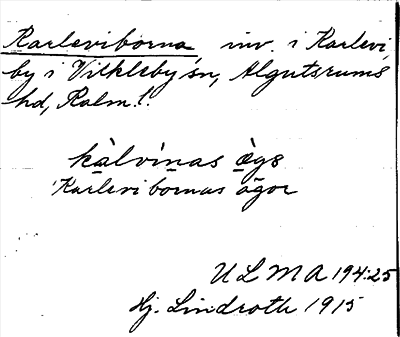 Karleviborna inv. i Karlevi,
by i Vickleby sn, Algutsrums
hd, Kalm. l.
kàlvìnas ä̀gs
Karlevibornas ägor
ULMA 194:25
Hj. Lindroth 1915